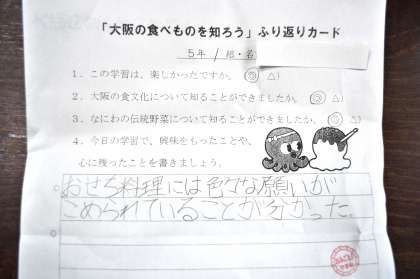 「大阪の食べものを知ろう」ふり返りカード
5年 1組・名
1．この学習は、楽しかったですか。（◎ △）
2．大阪の食文化について知ることができましたか。（◎ △）
3．なにわの伝統野菜について知ることができましたか。（◎ △）
4．今日の学習で、興味をもったことや、
心に残ったことを書きましょう。
おせち料理には色々な願いが
こめられていることが分かった。